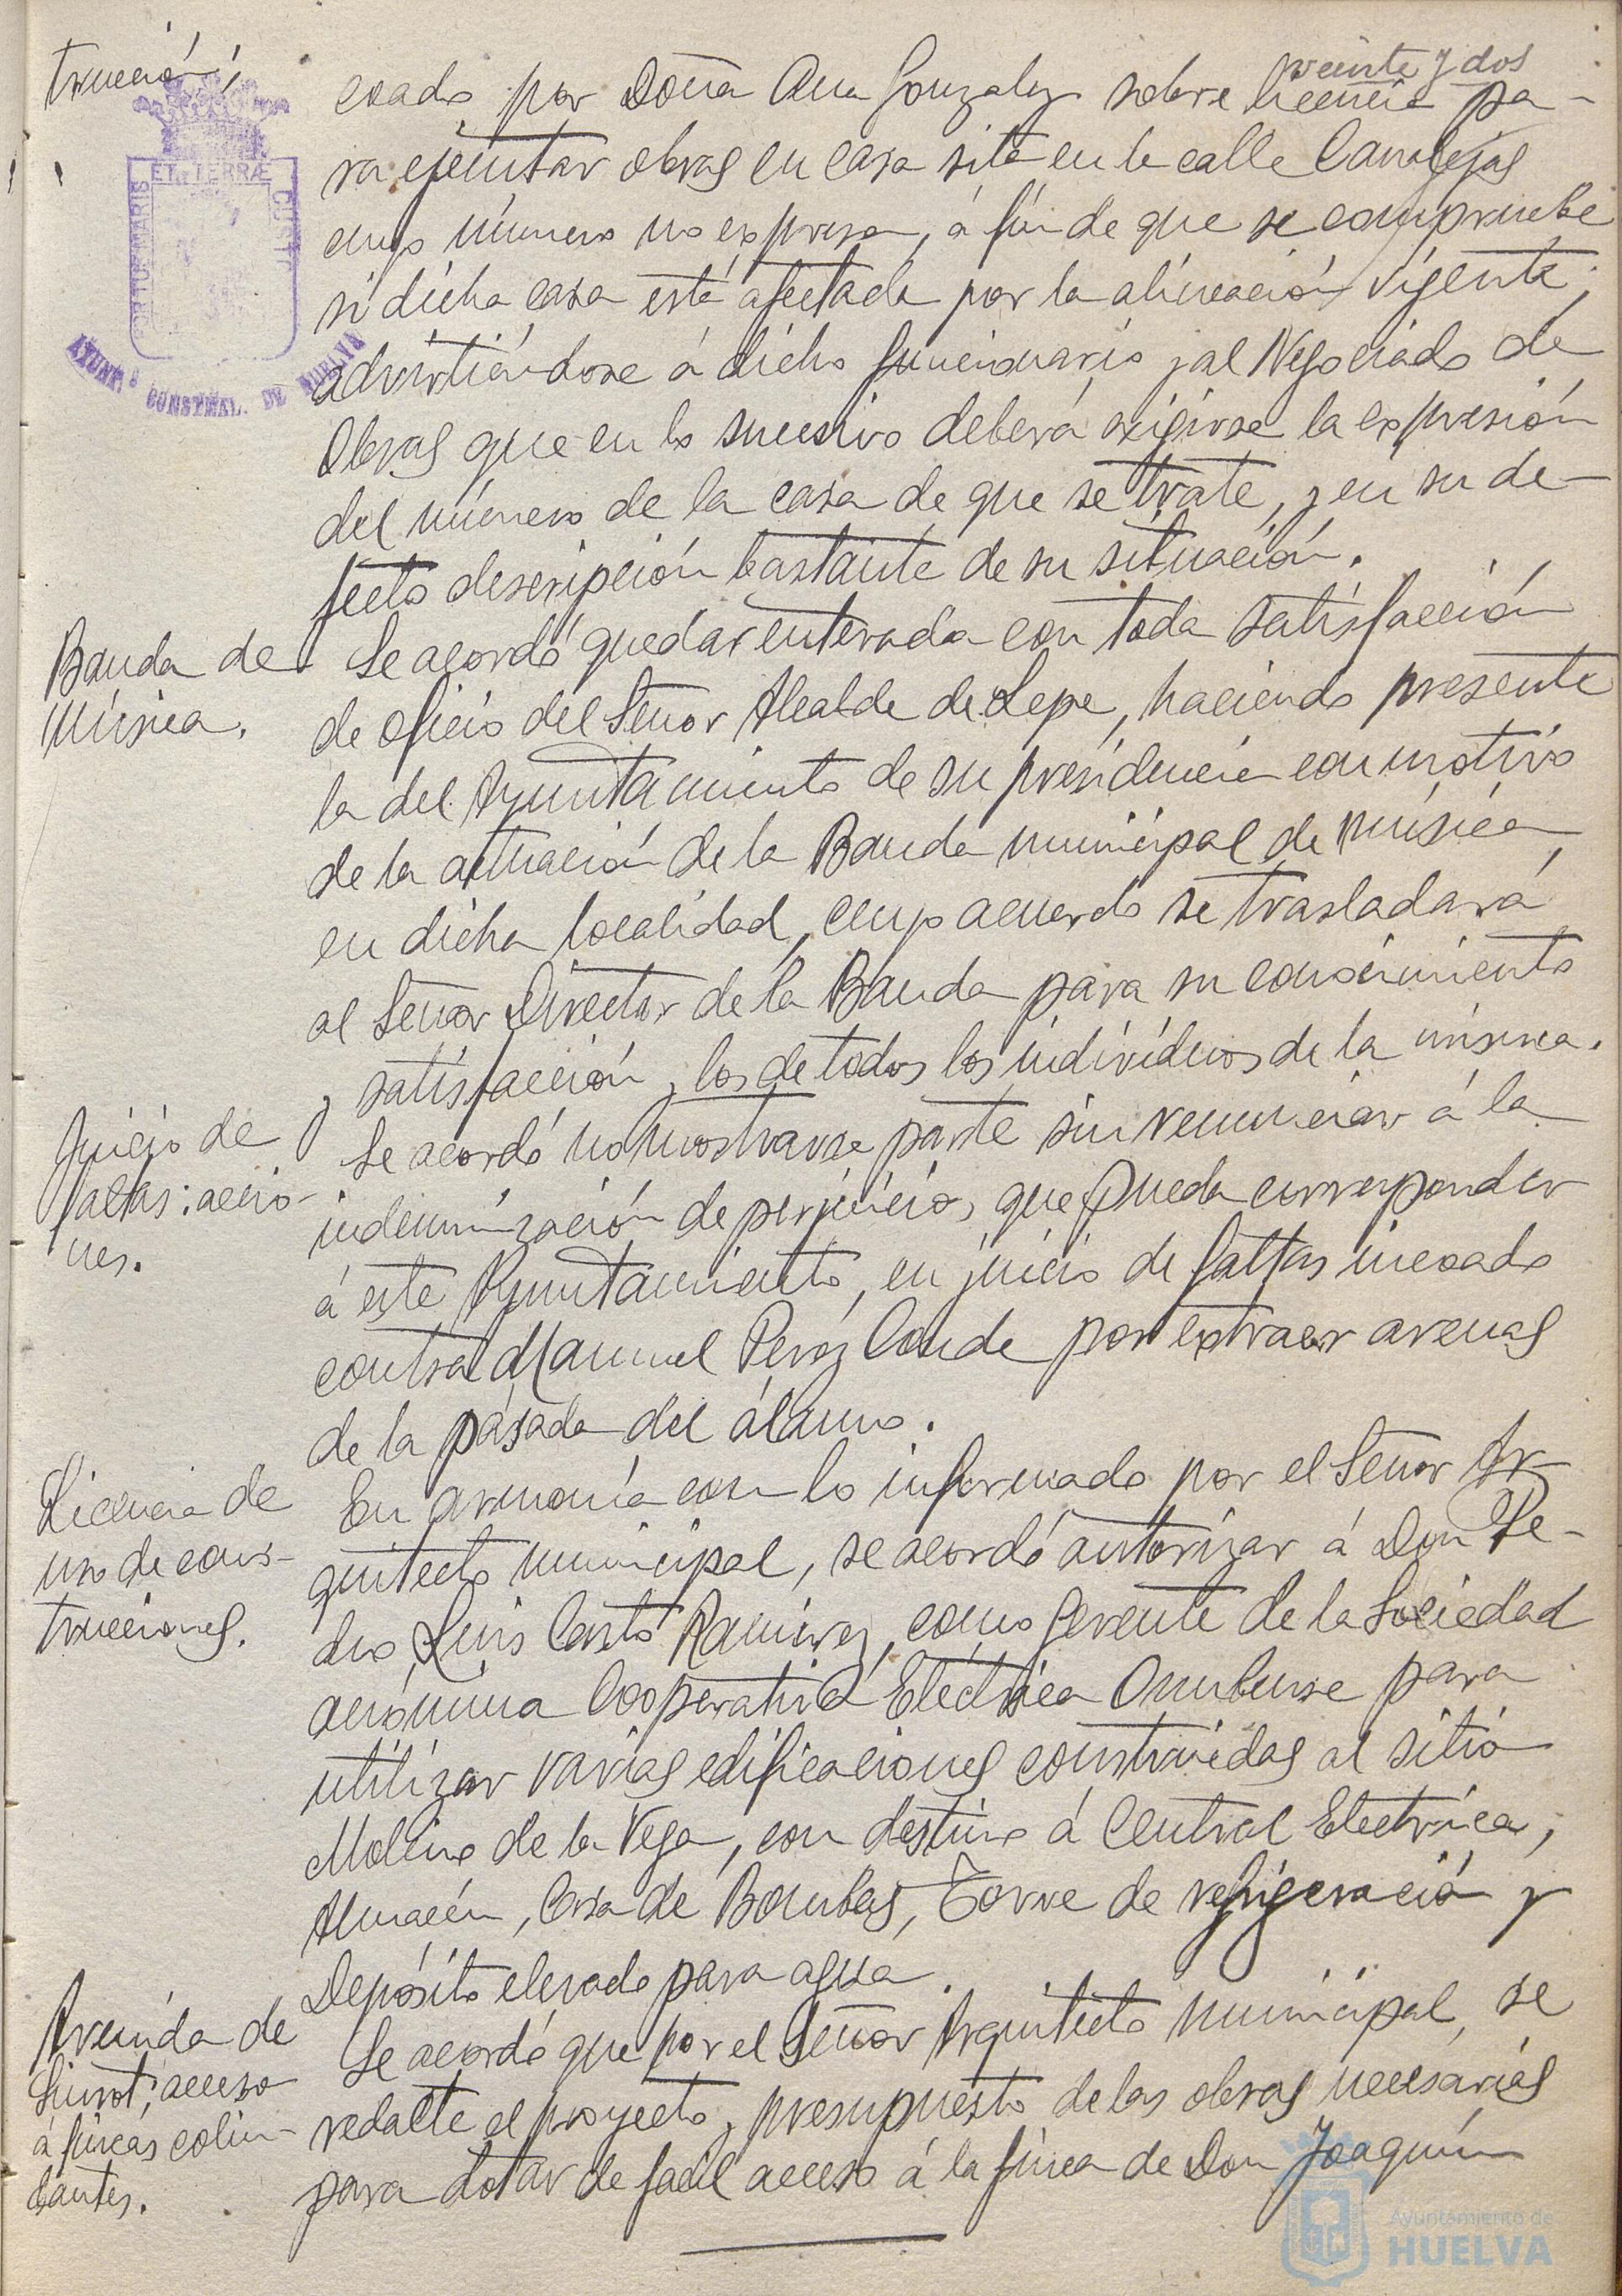 veinte y dos
trucción;
coado por Doña Ana Gonzalez sobre licencia pa-
ra ejecutar obras en casa sita en la calle Canalejas
cuyo número no expresa, á fin de que se compruebe
si dicha casa está afectada por la alineación vigente;
advirtiéndose á dicho funcionario y al Negociado de
Obras que en lo sucesivo deberá exigirse la expresión
del número de la casa de que se trate, y en su de-
fecto descripción bastante de su situación.
PORTUS MARIS ET TERRÆ CUSTODIA
AYUNT.º CONSTNAL. DE HUELVA
Banda de
Música.
Se acordó quedar enterada con toda satisfacción
de oficio del Señor Alcalde de Lepe, haciendo presente
la del Ayuntamiento de su presidencia con motivo
de la actuación de la Banda municipal de música
en dicha localidad, cuyo acuerdo se trasladará
al Señor Director de la Banda para su conocimiento
y satisfacción y los de todos los individuos de la misma.
Juicio de
faltas: accio-
nes.
Se acordó no mostrarse parte sin renunciar á la
indemnización de perjuicios que pueda corresponder
á este Ayuntamiento, en juicio de faltas incoado
contra Manuel Peréz Conde por extraer arenas
de la pasada del álamo.
Licencia de
uso de cons-
trucciones.
En armonía con lo informado por el Señor Ar-
quitecto municipal, se acordó autorizar á Don Pe-
dro Luis Casto Ramirez, como gerente de la Sociedad
anónima Cooperativa Eléctrica Onubense para
utilizar varias edificaciones construidas al sitio
Molino de la Vega, con destino á Central Electrica,
Almacén, Casa de Bombas, Torre de refrigeración y
Depósito elevado para agua.
Avenida de
Siurot; acceso
á fincas colin-
dantes.
Se acordó que por el Señor Arquitecto municipal, se
redacte el proyecto y presupuesto de las obras necesarias
para dotar de facil acceso á la finca de Don Joaquín
Ayuntamiento de
HUELVA